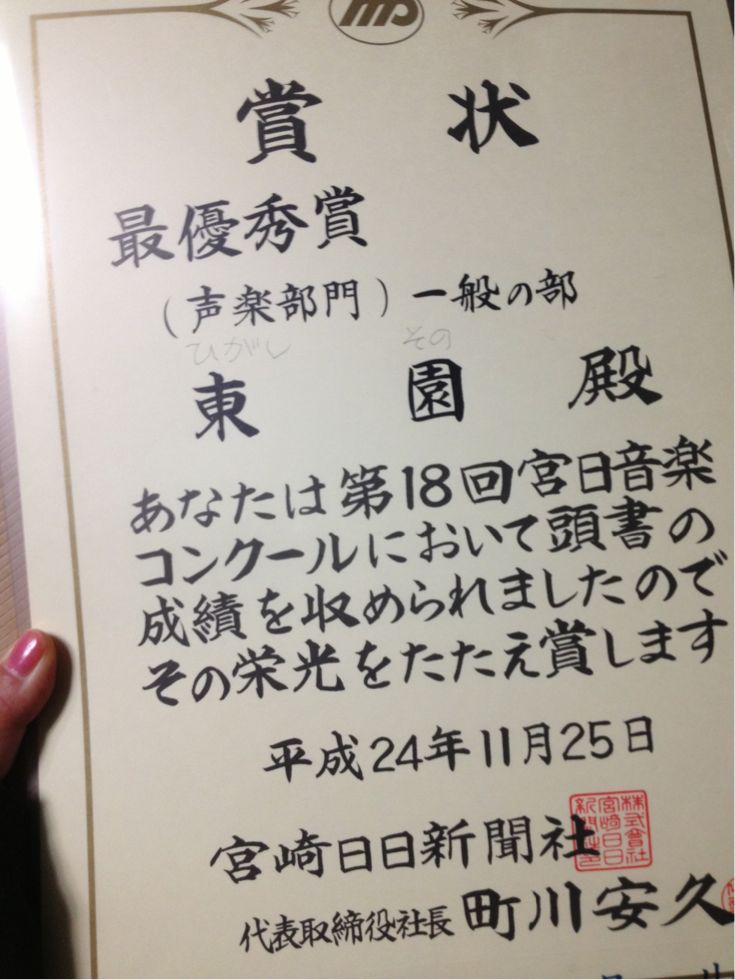 賞状
最優秀賞
（声楽部門）一般の部
ひがし その
東 園 殿
あなたは第18回宮日音楽
コンクールにおいて頭書の
成績を収められましたので
その栄光をたたえ賞します
平成24年11月25日
宮崎日日新聞社
株式會社
宮崎日日
代表取締役社長 町川安久